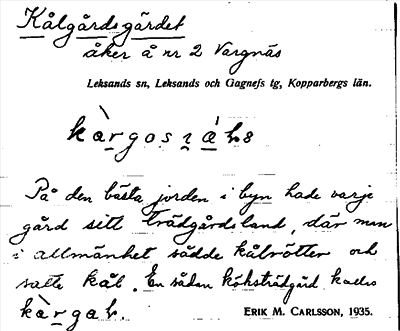 Kålgårdsgärdet
åker å nr 2 Vargnäs
Leksands sn, Leksands och Gagnefs tg, Kopparbergs län.
På den bästa jorden i byn hade varje
gård sitt trädgårdsland, där man
i allmänhet sådde kålrötter och
satte kål. En sådan köksträdgård kallas
ERIK M. CARLSSON, 1935.